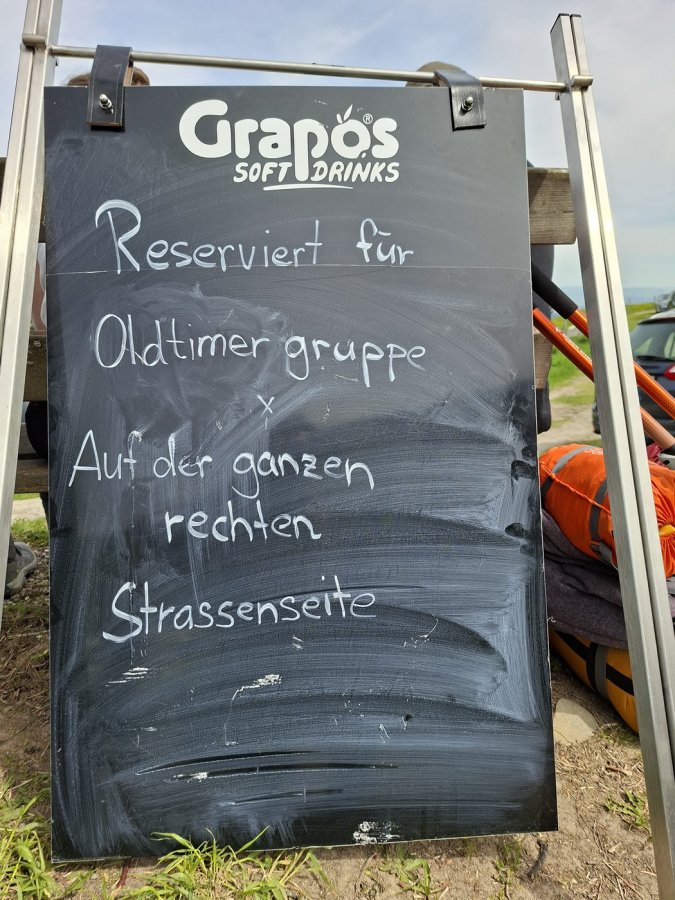 Grapos®
SOFT DRINKS
Reserviert für
Oldtimer gruppe
x
Auf der ganzen
rechten
Strassenseite